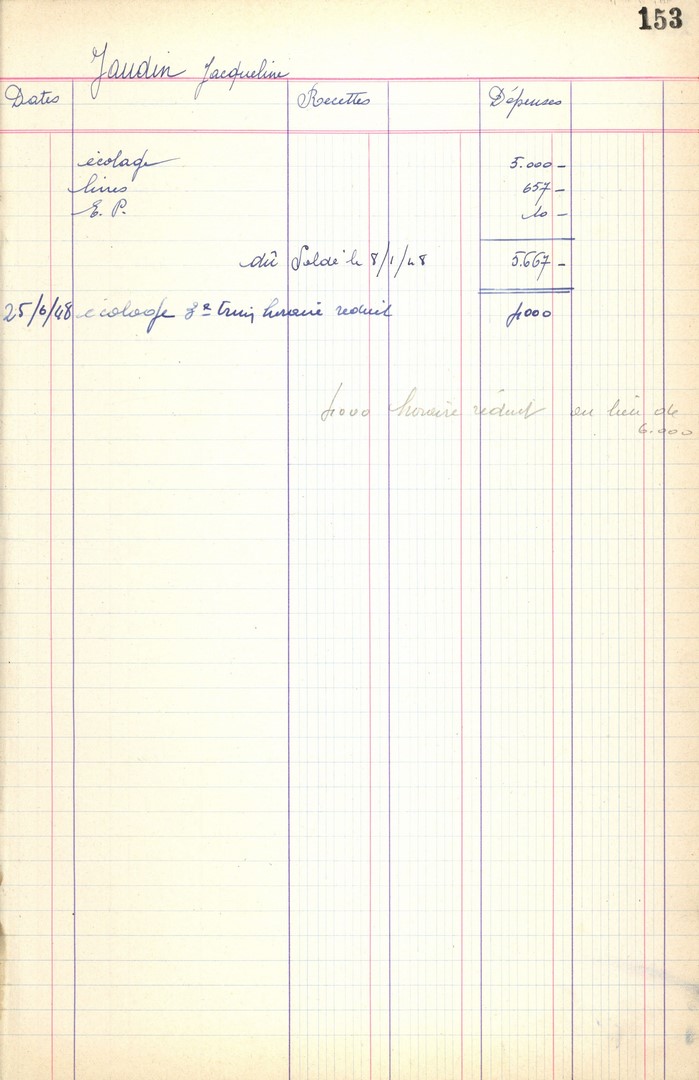 153
Jaudin Jacqueline
Dates Recettes Dépenses
écolage 5.000 -
livres 657 -
E. P. 10 -
dû Soldé le 8/1/48 5.667 -
25/6/48 écolage 3e trim horaire reduit 4000
4000 horaire réduit au lieu de
6.000